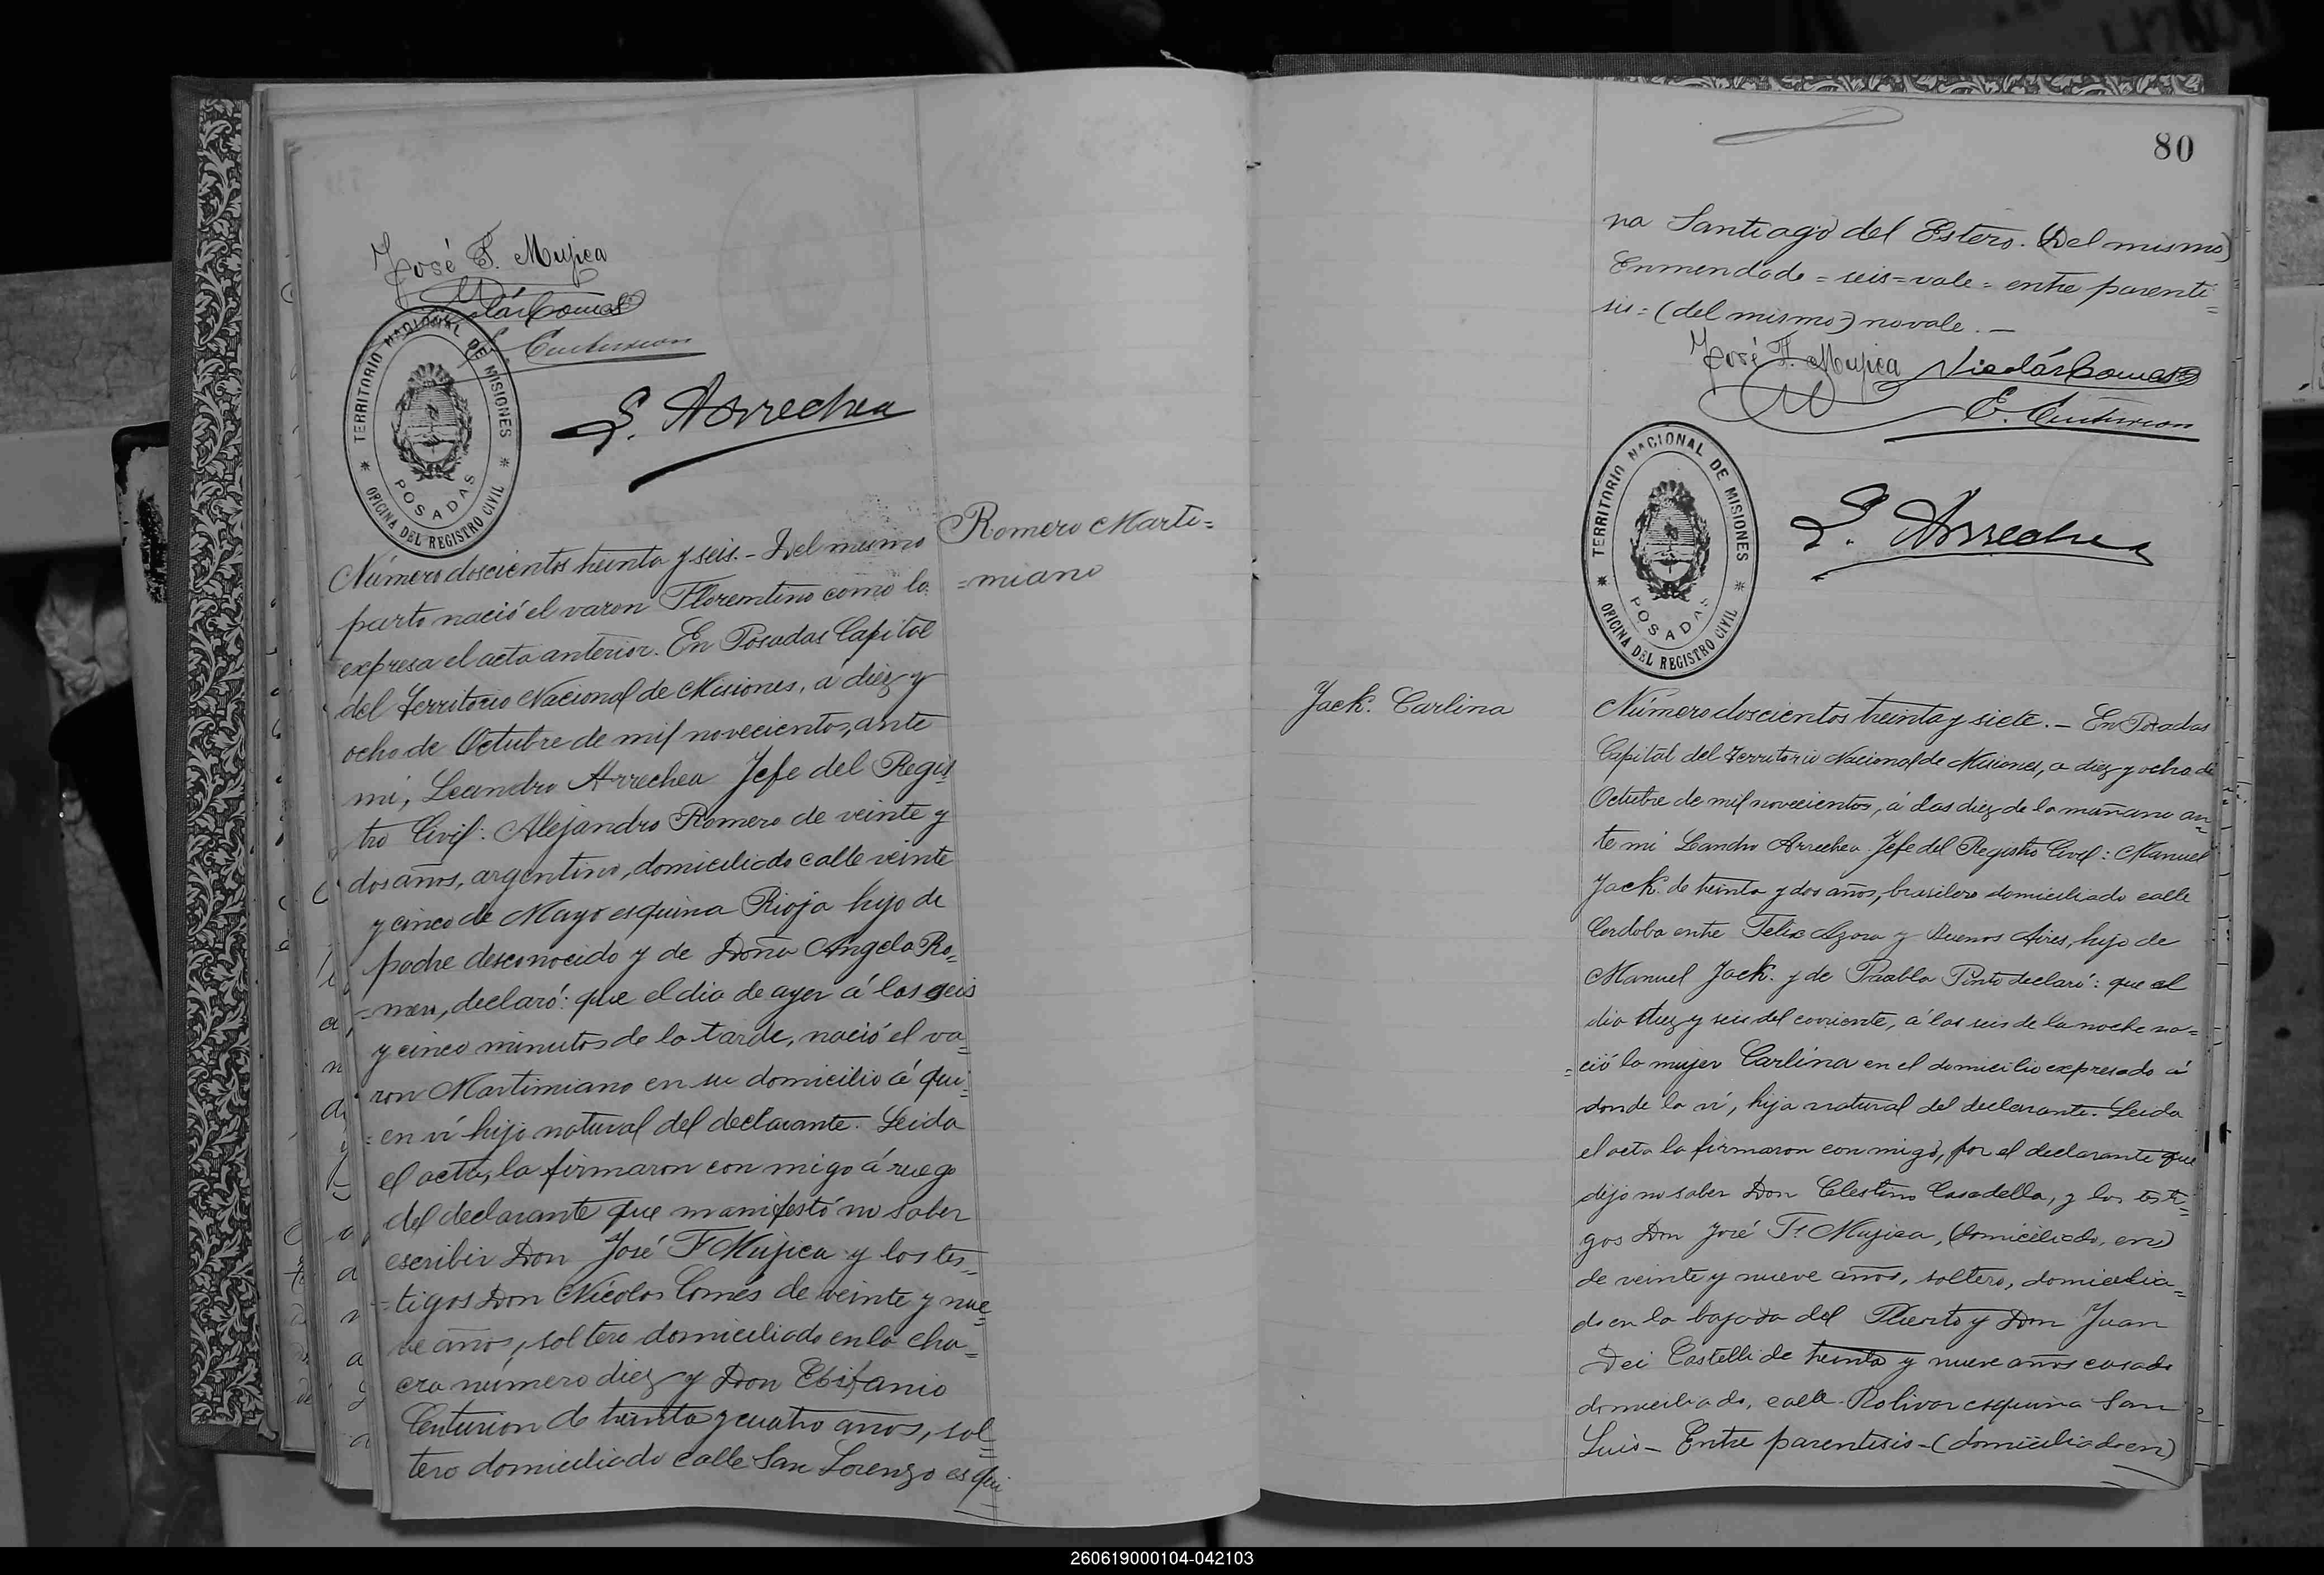 José F. Mujica
Nicolás Comes
E. Centurion
TERRITORIO NACIONAL DE MISIONES
POSADAS
OFICINA DEL REGISTRO CIVIL
L. Arrechea
Romero Marti=
=miano
Número doscientos treinta y seis.- Del mismo
parto nació el varon Florentino como lo
expresa el acta anterior. En Posadas Capital
del Territorio Nacional de Misiones, a diez y
ocho de Octubre de mil novecientos, ante
mi, Leandro Arrechea Jefe del Regis
tro Civil: Alejandro Romero de veinte y
dos años, argentino, domiciliado calle veinte
y cinco de Mayo esquina Rioja hijo de
padre desconocido y de Doña Angela Ro=
=mero, declaró: que el dia de ayer á las seis
y cinco minutos de la tarde, nació el va=
ron Martimiano en su domicilio á qui=
=en ví hijo natural del declarante. Leida
el acta, la firmaron con migo á ruego
del declarante que manifestó no saber
escribir Don José F Mujica y los tes=
=tigos Don Nicolas Comés de veinte y nue
ve años, soltero domiciliado en la cha=
cra número diez y Don Epifanio
Centurion de treinta y cuatro años, sol=
tero domiciliado calle San Lorenzo esqui
80
na Santiago del Estero. (Del mismo)
Enmendado = seis = vale = entre parenté=
sis = (del mismo) no vale. -
José F. Mujica Nicolás Comes
E. Centurion
TERRITORIO NACIONAL DE MISIONES
POSADAS
OFICINA DEL REGISTRO CIVIL
L. Arrechea
Jack. Carlina
Número doscientos treinta y siete. - En Posadas
Capital del Territorio Nacional de Misiones, a diez y ocho de
Octubre de mil novecientos, á las diez de la mañana an=
te mi Leandro Arrechea Jefe del Registro Civil: Manuel
Jack. de treinta y dos años, brasilero domiciliado calle
Cordoba entre Felix Azara y Buenos Aires, hijo de
Manuel Jack. y de Pabla Pinto declaró: que el
dia diez y seis del corriente, á las seis de la noche na=
=ció la mujer Carlina en el domicilio expresado á
donde la ví, hija natural del declarante. Leida
el acta la firmaron con migo, por el declarante que
dijo no saber Don Celestino Casadella, y los testi=
gos Don José F. Mujica, (domiciliado, en)
de veinte y nueve años, soltero, domicilia=
do en la bajada del Puerto y Don Juan
Dei Castelli de treinta y nueve años casado
domiciliado, calle Bolivar esquina San
Luis - Entre parentesis - (domiciliado en)
260619000104-042103